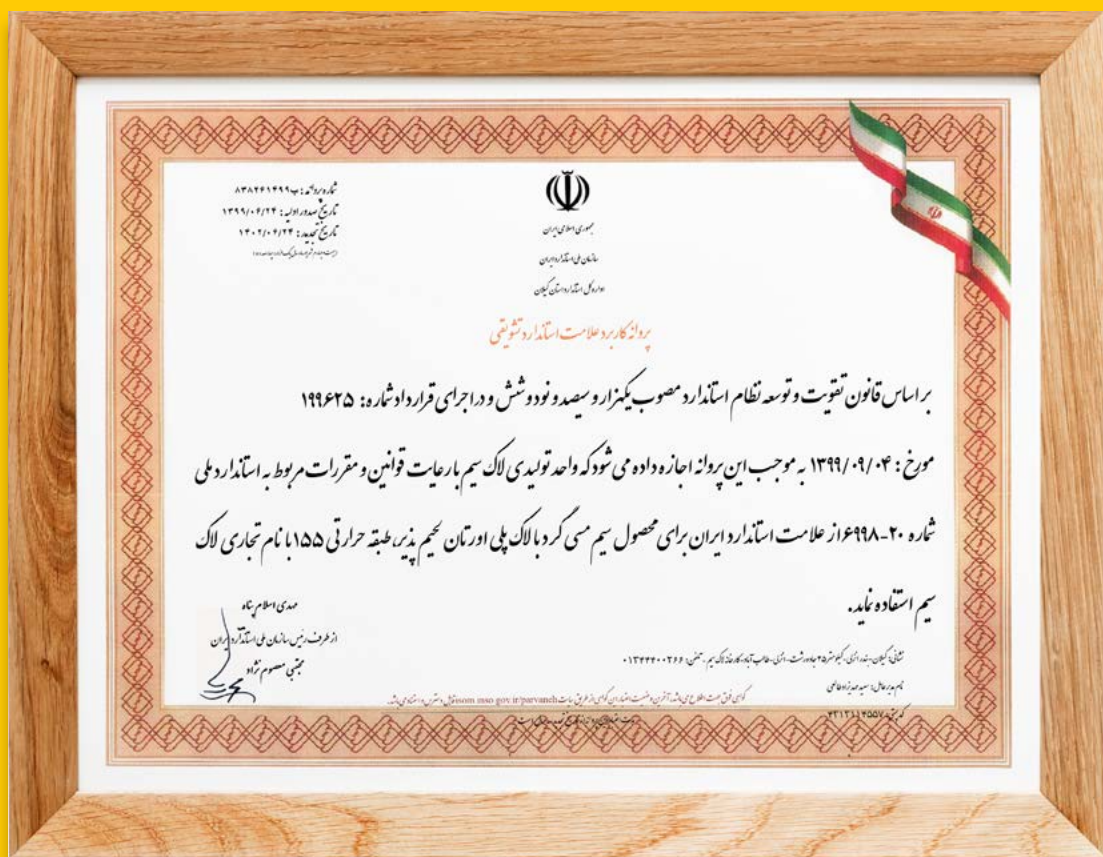 شماره پروانه: ب۸۳۸۲۶۱۴۹۹
تاریخ صدور اولیه: ۱۳۹۹/۰۶/۲۴
تاریخ تجدید: ۱۴۰۲/۰۶/۲۴
جمهوری اسلامی ایران
سازمان ملی استاندارد ایران
اداره کل استاندارد استان گیلان
پروانه کاربرد علامت استاندارد تشویقی
بر اساس قانون تقویت و توسعه نظام استاندارد مصوب یکهزار و سیصد و نود و شش و در اجرای قرارداد شماره: ۱۹۹۶۲۵
مورخ: ۱۳۹۹/۰۹/۰۴ به موجب این پروانه اجازه داده می شود که واحد تولیدی لاک سیم با رعایت قوانین و مقررات مربوط به استاندارد ملی
شماره ۲۰-۶۹۹۸ از علامت استاندارد ایران برای محصول سیم مسی گرد با لاک پلی اورتان لحیم پذیر، طبقه حرارتی ۱۵۵ با نام تجاری لاک
سیم استفاده نماید.
مهدی اسلام پناه
از طرف رئیس سازمان ملی استاندارد ایران
مجتبی معصوم نژاد
نشانی: گیلان - بندر انزلی - کیلومتر ۲۵ جاده رشت - انزلی - طالب آباد، کارخانه لاک سیم - تلفن: ۰۱۳۴۴۴۰۰۲۶۶
نام مدیرعامل: سعید
گواهی فوق جهت اطلاع می باشد، آخرین وضعیت اعتبار این گواهی از طریق سایت isom.inso.gov.ir/parvaneh قابل دسترس و استناد می باشد.
کد پستی: ۴۳۱۳۱۱۴۵۵۷